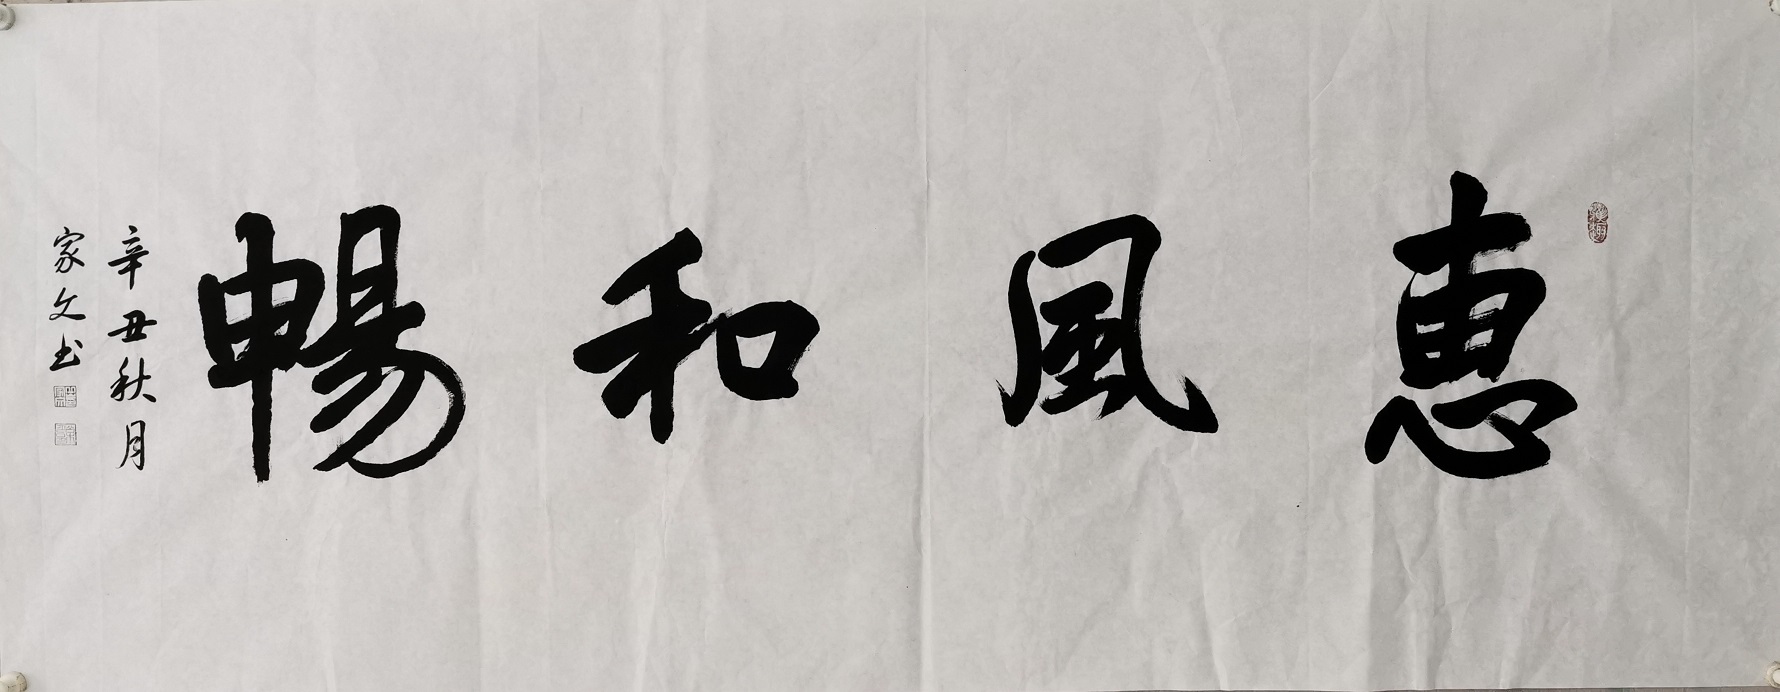 惠風和暢
辛丑秋月
家文书